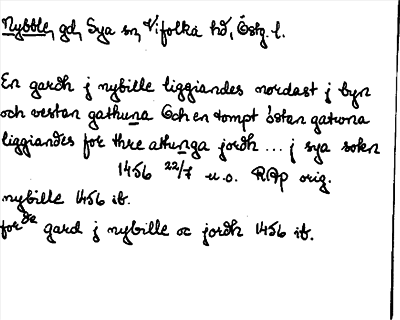 Nybble, gd, Sya sn, Vifolka hd, Östg. l.
En gardh j nybille liggiandes nordast j byn
och vestan gathuna Och en tompt östan gatwna
liggiandes for thre athunga jordh ... j sya soken
1456 22/7 u.o. RAp orig.
nybille 1456 ib.
for de gard j nybille oc jordh 1456 ib.